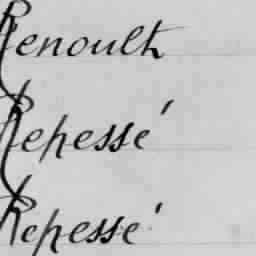 Renoult
Repessé
Repessé